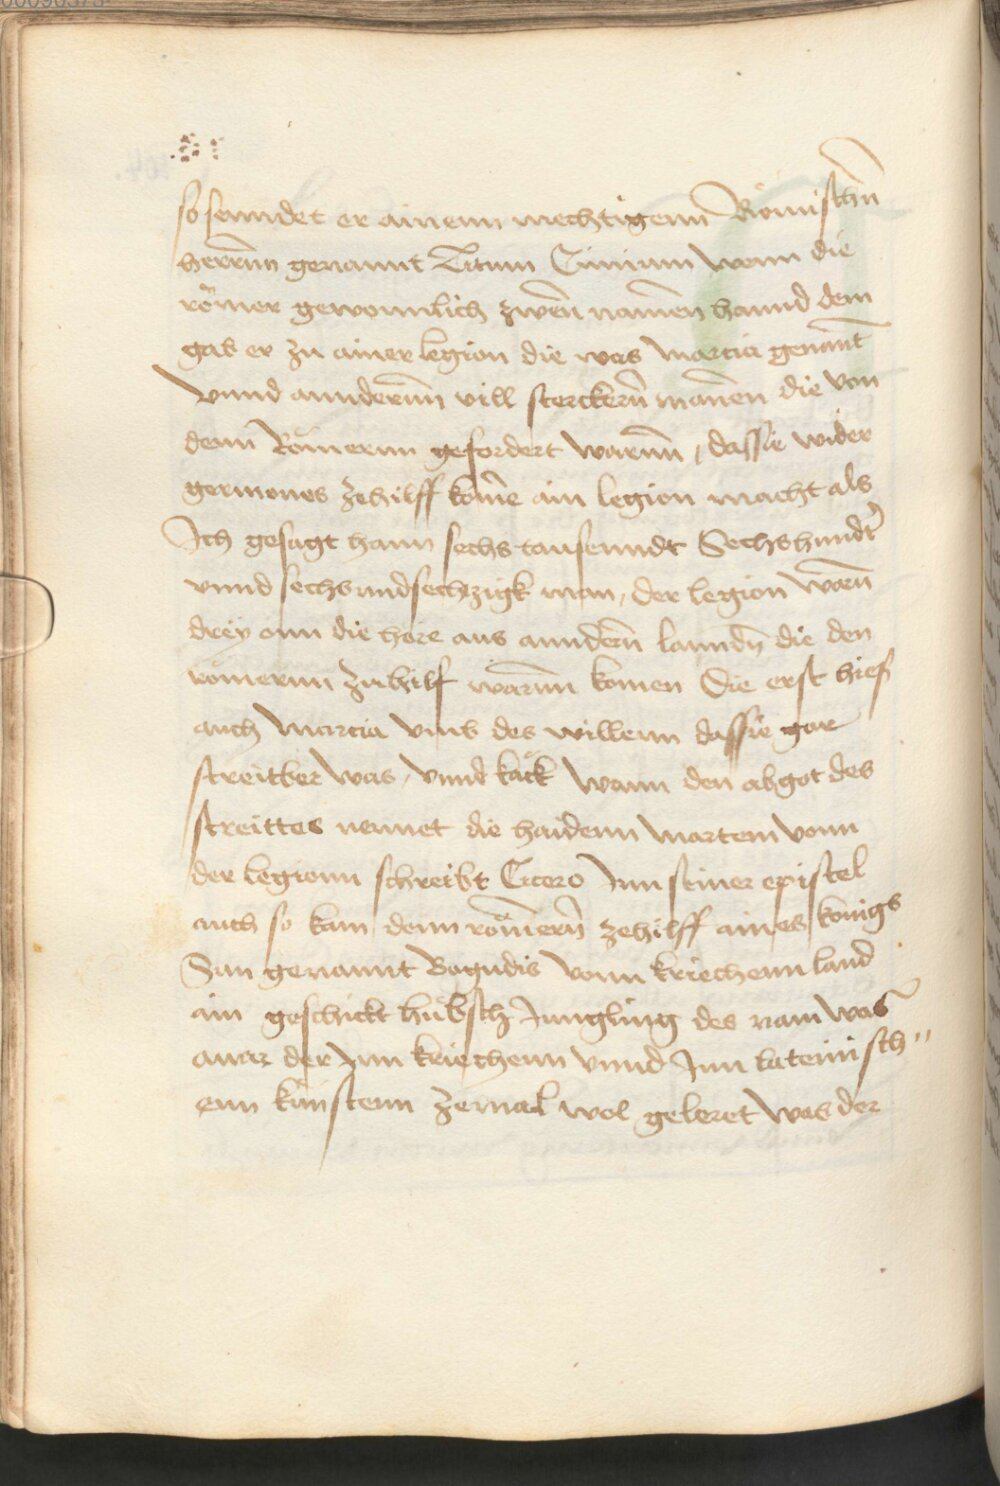 so senndet er ainenn mechtigenn Römischn̄
herrnn genannt Titum Cinium wenn die
römer gewonnlich zwen̄ namen̄ hannd dem
gab er zu ainer legion die was martia genan̄t
vnnd anndernn vill sterckern̄ manen̄ die von
denn Römernn gefordert warnn, dassie wider
germones zehilff kom̄e ain legion macht als
Ich gesagt hann sechs tausenndt Sechshundt̄
vnnd sechsundsechzigk man, der legion warn̄
drey onn die höre aus anndern̄ lanndn̄ die den
römernn zuhilf warnn komen Die erst hieß
auch Martia vmb des willenn dassie gar
streitber was, vnnd käck wann den abgot des
streittes nennet die haidenn Martem vonn
der legionn schreibt Cicero Inn seiner epistel
auch so kam denn römern̄ zehilff aines königs
Sun genannt Bogudis vonn kriechenn land
ain geschickt hübsch Jungling des nam was
auar der Inn kriechenn vnnd Inn lateinisch"
enn künstenn zemal wol geleret was der